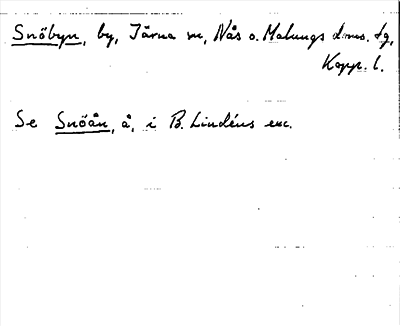 Snöbyn, by, Järna sn, Nås o. Malungs dms. tg,
Kopp. l.
Se Snöån, å, i B. Lindéns exc.